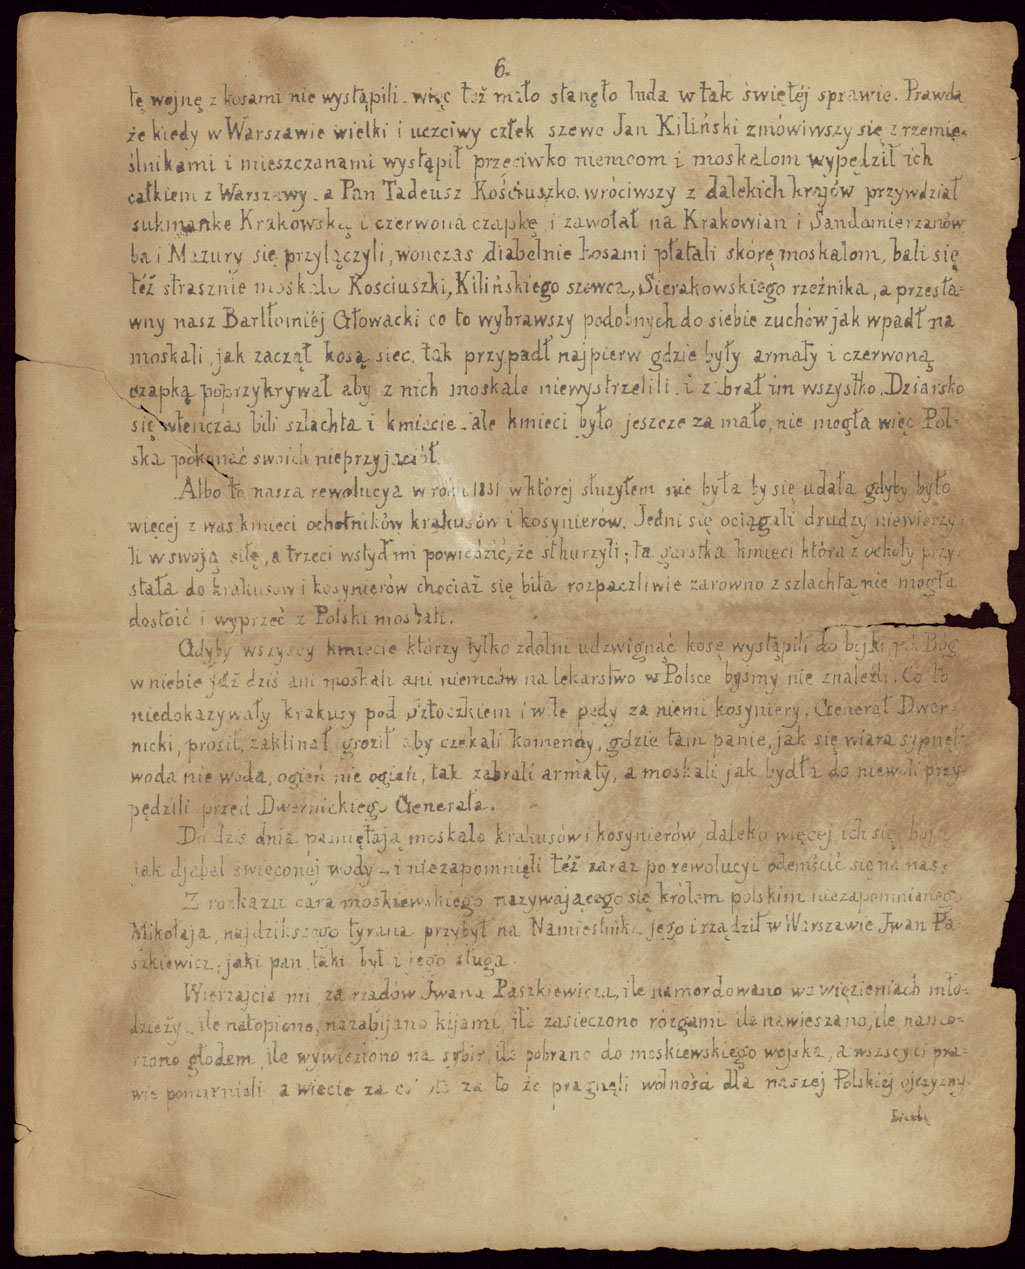 6.
tę wojnę z kosami nie wystąpili - więc też mało stanęło luda w tak świętéj sprawie. Prawda
że kiedy w Warszawie wielki i uczciwy człek szewc Jan Kiliński zmówiwszy się z rzemie-
ślnikami i mieszczanami wystąpił przeciwko niemcom i moskalom wypędził ich
całkiem z Warszawy - a Pan Tadeusz Kościuszko wróciwszy z dalekich krajów przywdział
sukmanke Krakowską i czerwoną czapkę i zawołał na Krakowian i Sandomierzanów
ba i Mazury się przyłączyli, wonczas diabelnie kosami płatali skórę moskalom, bali się
téż strasznie moskale Kosciuszki, Kilińskiego szewca, Sierakowskiego rzeźnika, a przesła-
wny nasz Bartłomiéj Głowacki co to wybrawszy podobnych do siebie zuchów jak wpadł na
moskali, jak zaczął kosą siec, tak przypadł najpierw gdzie były armaty i czerwoną
czapką poprzykrywał aby z nich moskale niewystrzelili i zabrał im wszystko. Dziarsko
się wtenczas bili szlachta i kmiecie - ale kmieci było jeszcze za mało, nie mogła więc Pol-
ska pokonać swoich nieprzyjaciół.
Albo to nasza rewolucya w roku 1831 w której służyłem nie była by się udała gdyby było
więcej z was kmieci ochotników krakusów i kosynierów. Jedni się ociągali drudzy niewierzy-
li w swoją siłę, a trzeci wstyd mi powiedzić, że sthurzyli; ta garstka kmieci która z ochoty przy-
stała do krakusów i kosynierów chociaż się biła rozpaczliwie zarówno z szlachtą nie mogła
dostoić i wyprzeć z Polski moskali.
Gdyby wszyscy kmiecie którzy tylko zdolni udzwignąć kosę wystąpili do bijki, jak Bóg
w niebie już dziś ani moskali ani niemców na lekarstwo w Polsce byśmy nie znaleźli. Co to
niedokazywały krakusy pod Stoczkiem i w te pędy za niemi kosyniery. Generał Dwer-
nicki, prosił, zaklinał groził aby czekali komendy, gdzie tam panie, jak się wiara sypnęł
woda nie woda, ogień nie ogień, tak zabrali armaty, a moskali jak bydła do niewoli przy-
pędzili przed Dwernickiego Generała.
Do dziś dnia pamiętają moskale krakusów i kosynierów, daleko więcej ich się boją
jak djabeł święconéj wody - i niezapomnieli téż zaraz po rewolucyi odemścić się na nas.
Z rozkazu cara moskiewskiego nazywającego się królem polskim niezapomnianego
Mikołaja, najdzikszego tyrana przybył na Namiestnika jego i rządził w Warszawie Jwan Pa-
szkiewicz; jaki pan, taki był i jego sługa.
Wierzajcie mi, za rządów Jwana Paszkiewicza, ile namordowano we więzieniach mło-
dzieży - ile natopiono, nazabijano kijami, ile zasieczono rózgami ile nawieszano, ile namo-
rzono głodem, ile wywieziono na sybir, ile pobrano do moskiewskiego wojska, a wszscyci pra-
wie pomarnieli a wiecie za co oto za to że pragnęli wolności dla naszej Polskiéj ojczyzny.